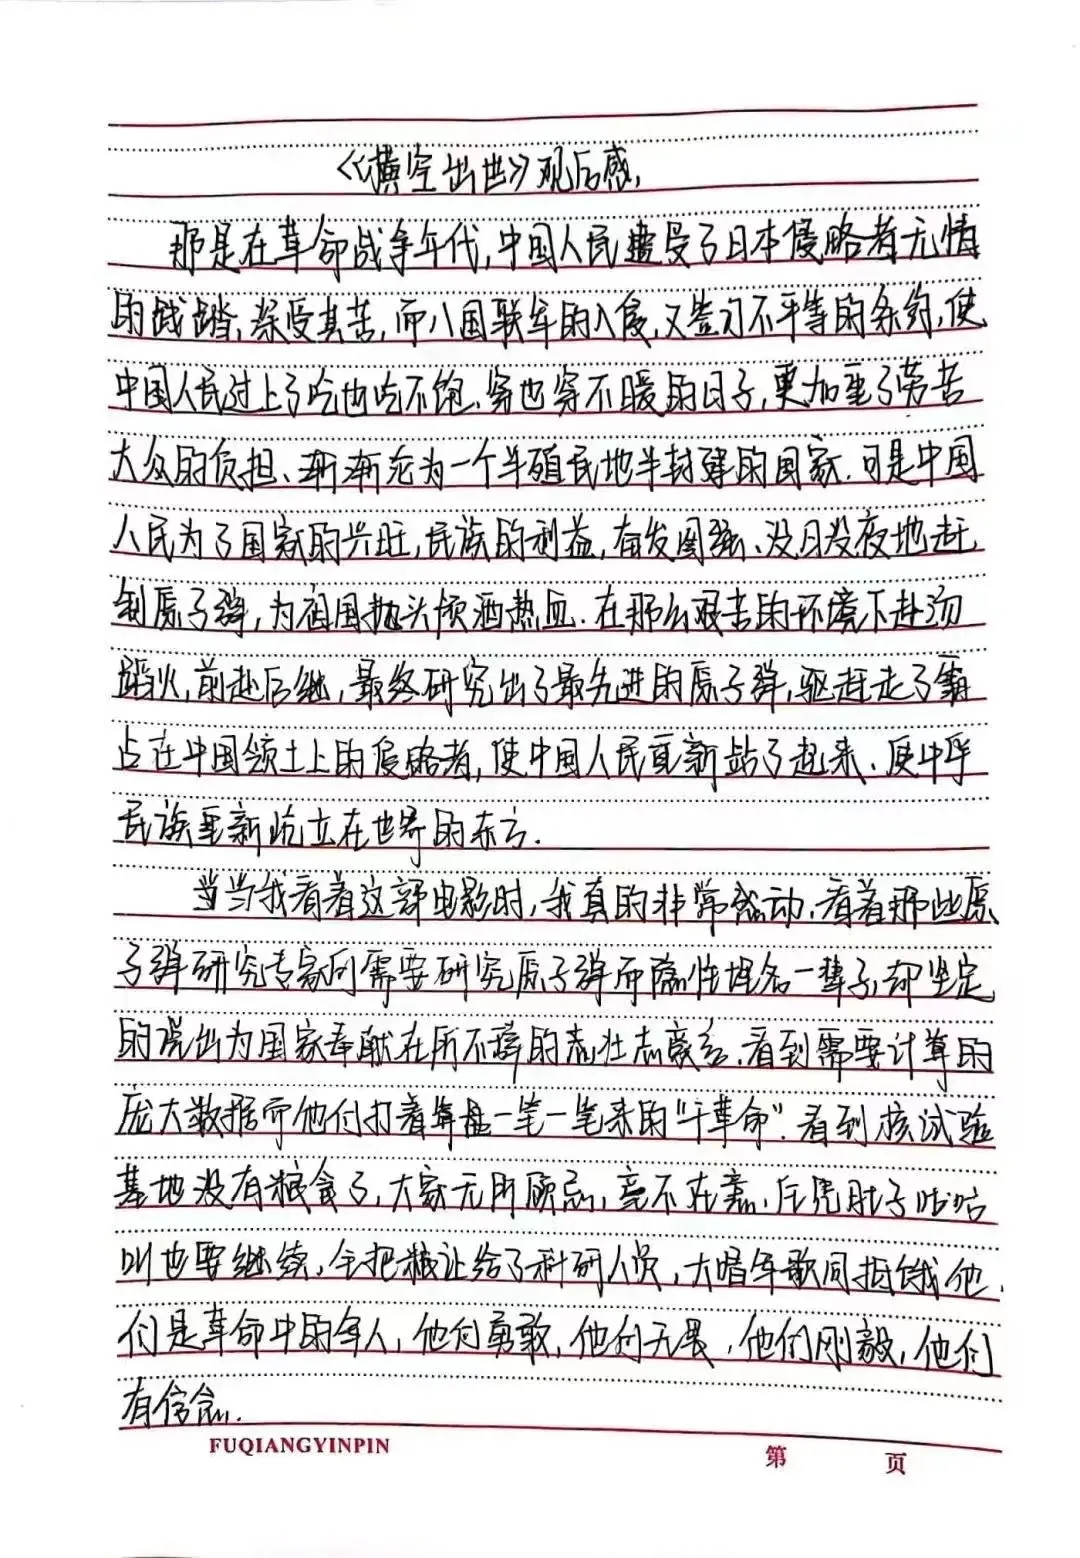 《横空出世》观后感
那是在革命战争年代,中国人民遭受了日本侵略者无情
的践踏,深受其苦,而八国联军的入侵,又签订不平等的条约,使
中国人民过上了吃也吃不饱、穿也穿不暖的日子,更加重了劳苦
大众的负担、渐渐沦为一个半殖民地半封建的国家.可是中国
人民为了国家的兴旺,民族的利益,奋发图强、没日没夜地赶
制原子弹,为祖国抛头颅洒热血.在那么艰苦的环境下赴汤
蹈火,前赴后继,最终研究出了最先进的原子弹,驱赶走了霸
占在中国领土上的侵略者,使中国人民重新站了起来、使中华
民族重新屹立在世界的东方.
当当我看着这部电影时,我真的非常感动.看着那些原
子弹研究专家问需要研究原子弹而隐姓埋名一辈子,却坚定
的说出为国家奉献在所不辞的壮志豪言.看到需要计算的
庞大数据而他们打着算盘一笔一笔来的"干革命".看到核试验
基地没有粮食了,大家无所顾忌,毫不在意、后凭肚子咕咕
叫也要继续,全把粮让给了科研人员,大唱军歌同抵饿他
们是革命中的军人,他们勇敢,他们无畏,他们刚毅,他们
有信念.
FUQIANGYINPIN
第 页